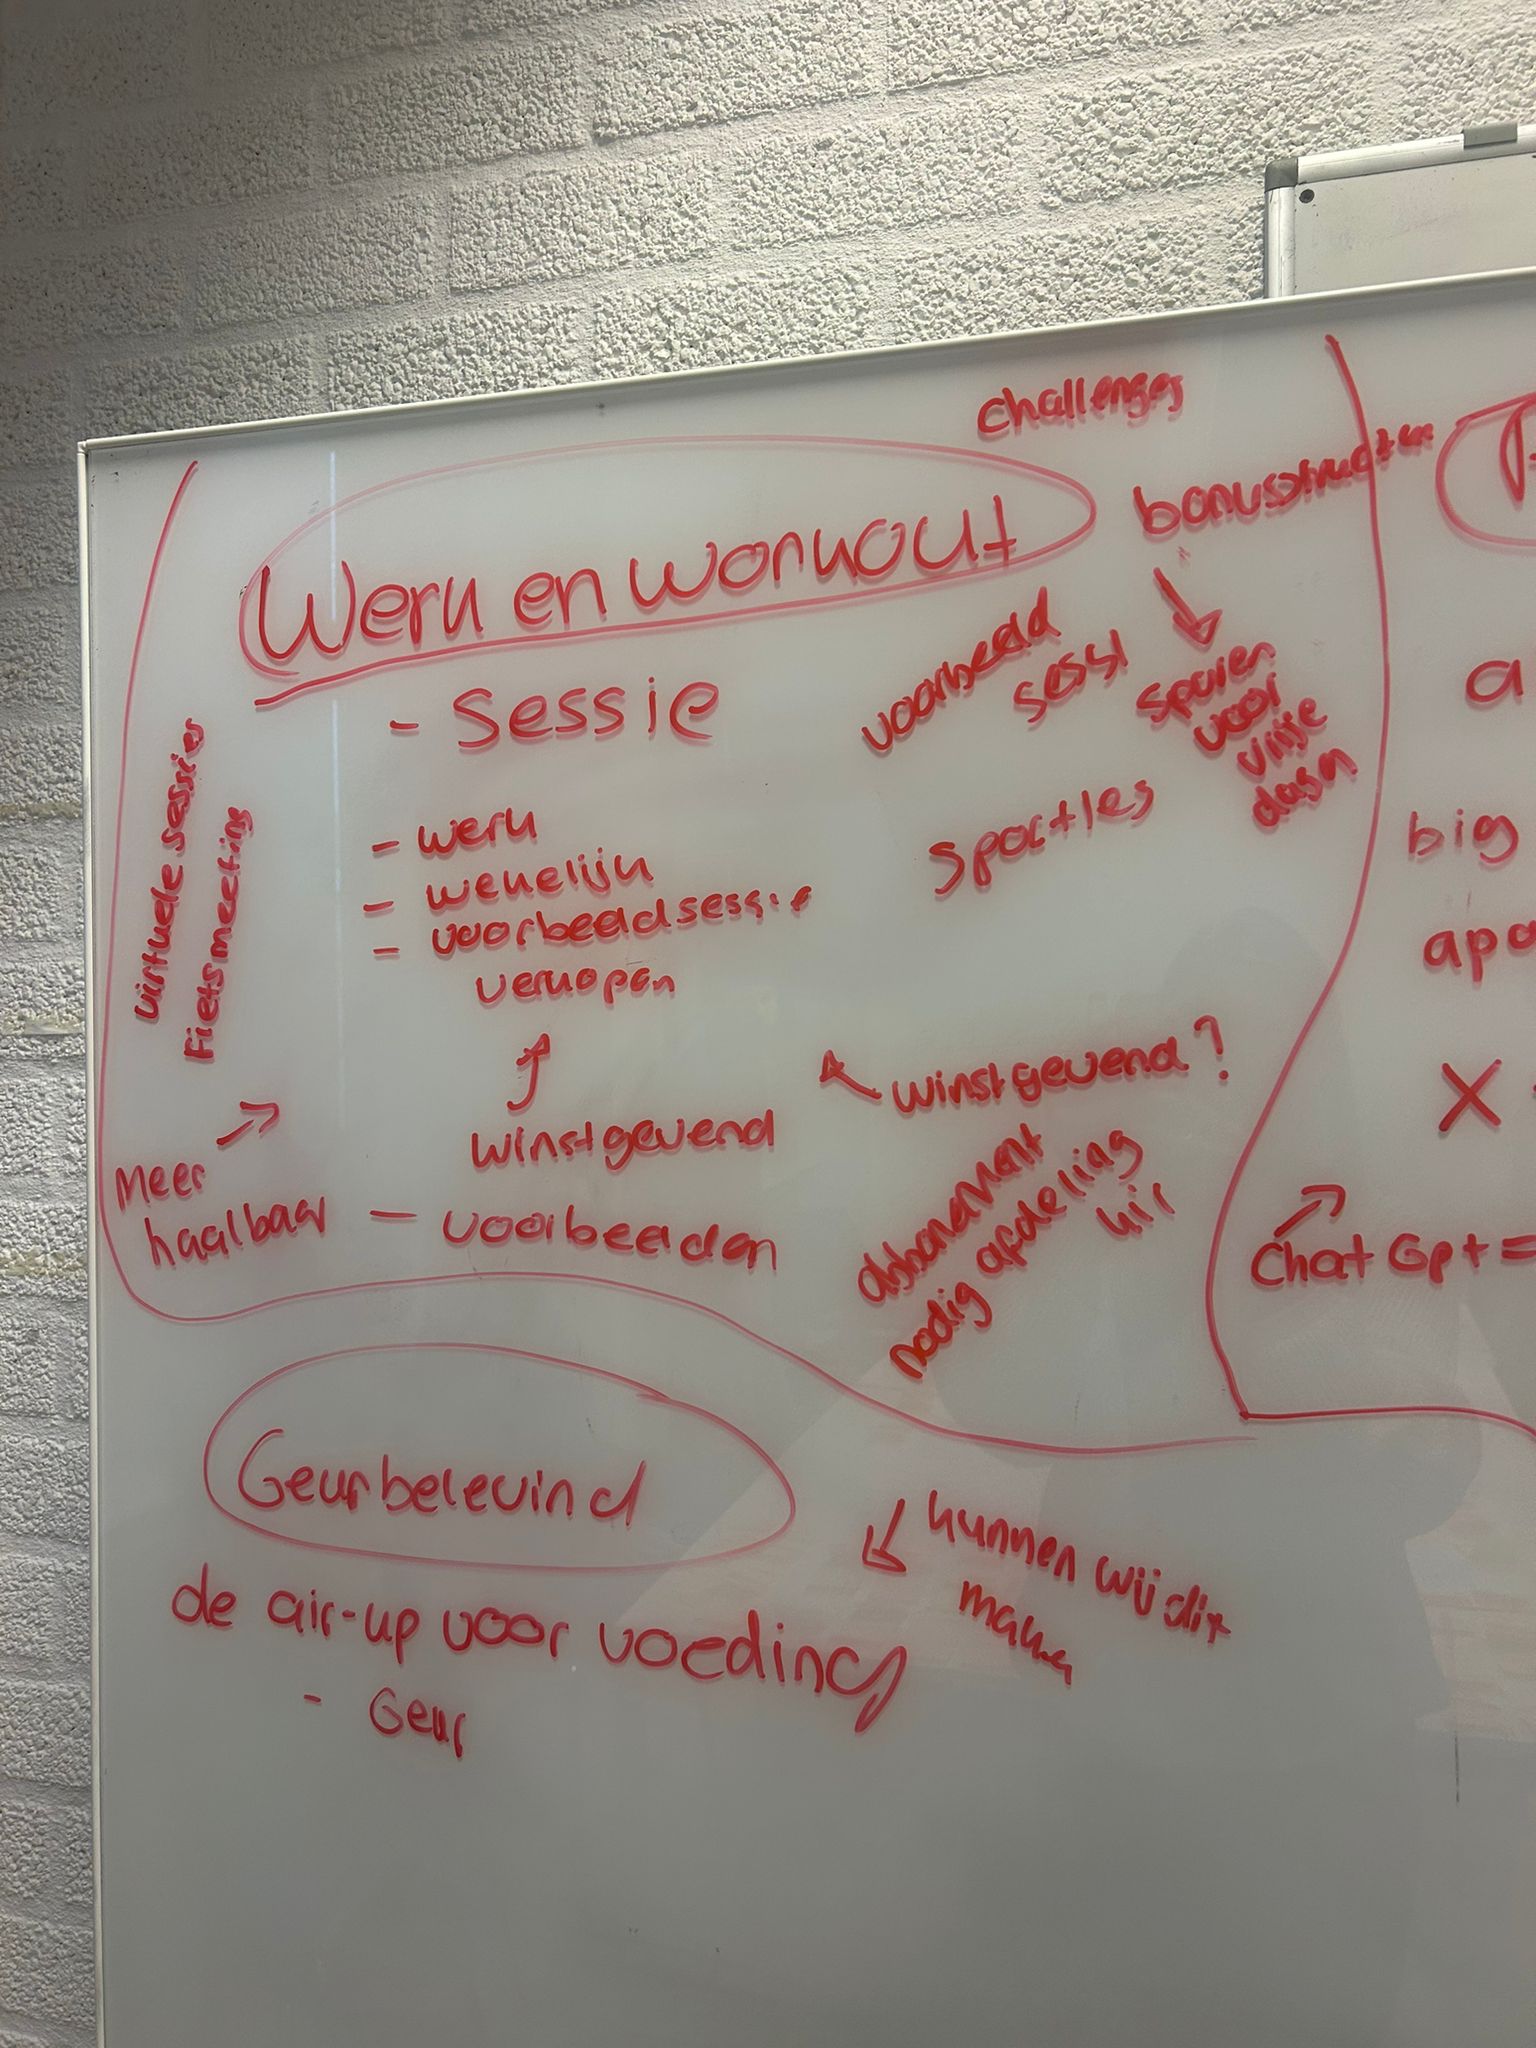 Challenges
bonusstructen
Werk en workout
- Sessie
voorbeeld
sessi
sparen
voor
vrije
dagen
Sportles
- werk
- wekelijk
- voorbeeldsessie
verkopen
virtuele sessies
Fietsmeeting
winstgevend?
winstgevend
Meer
haalbaar
- voorbeelden
abbonement
nodig afdeling
hir
a
big
apo
X
Chat Gpt =
Geurbelevind
de air-up voor voeding
- Geur
kunnen wij dit
maken